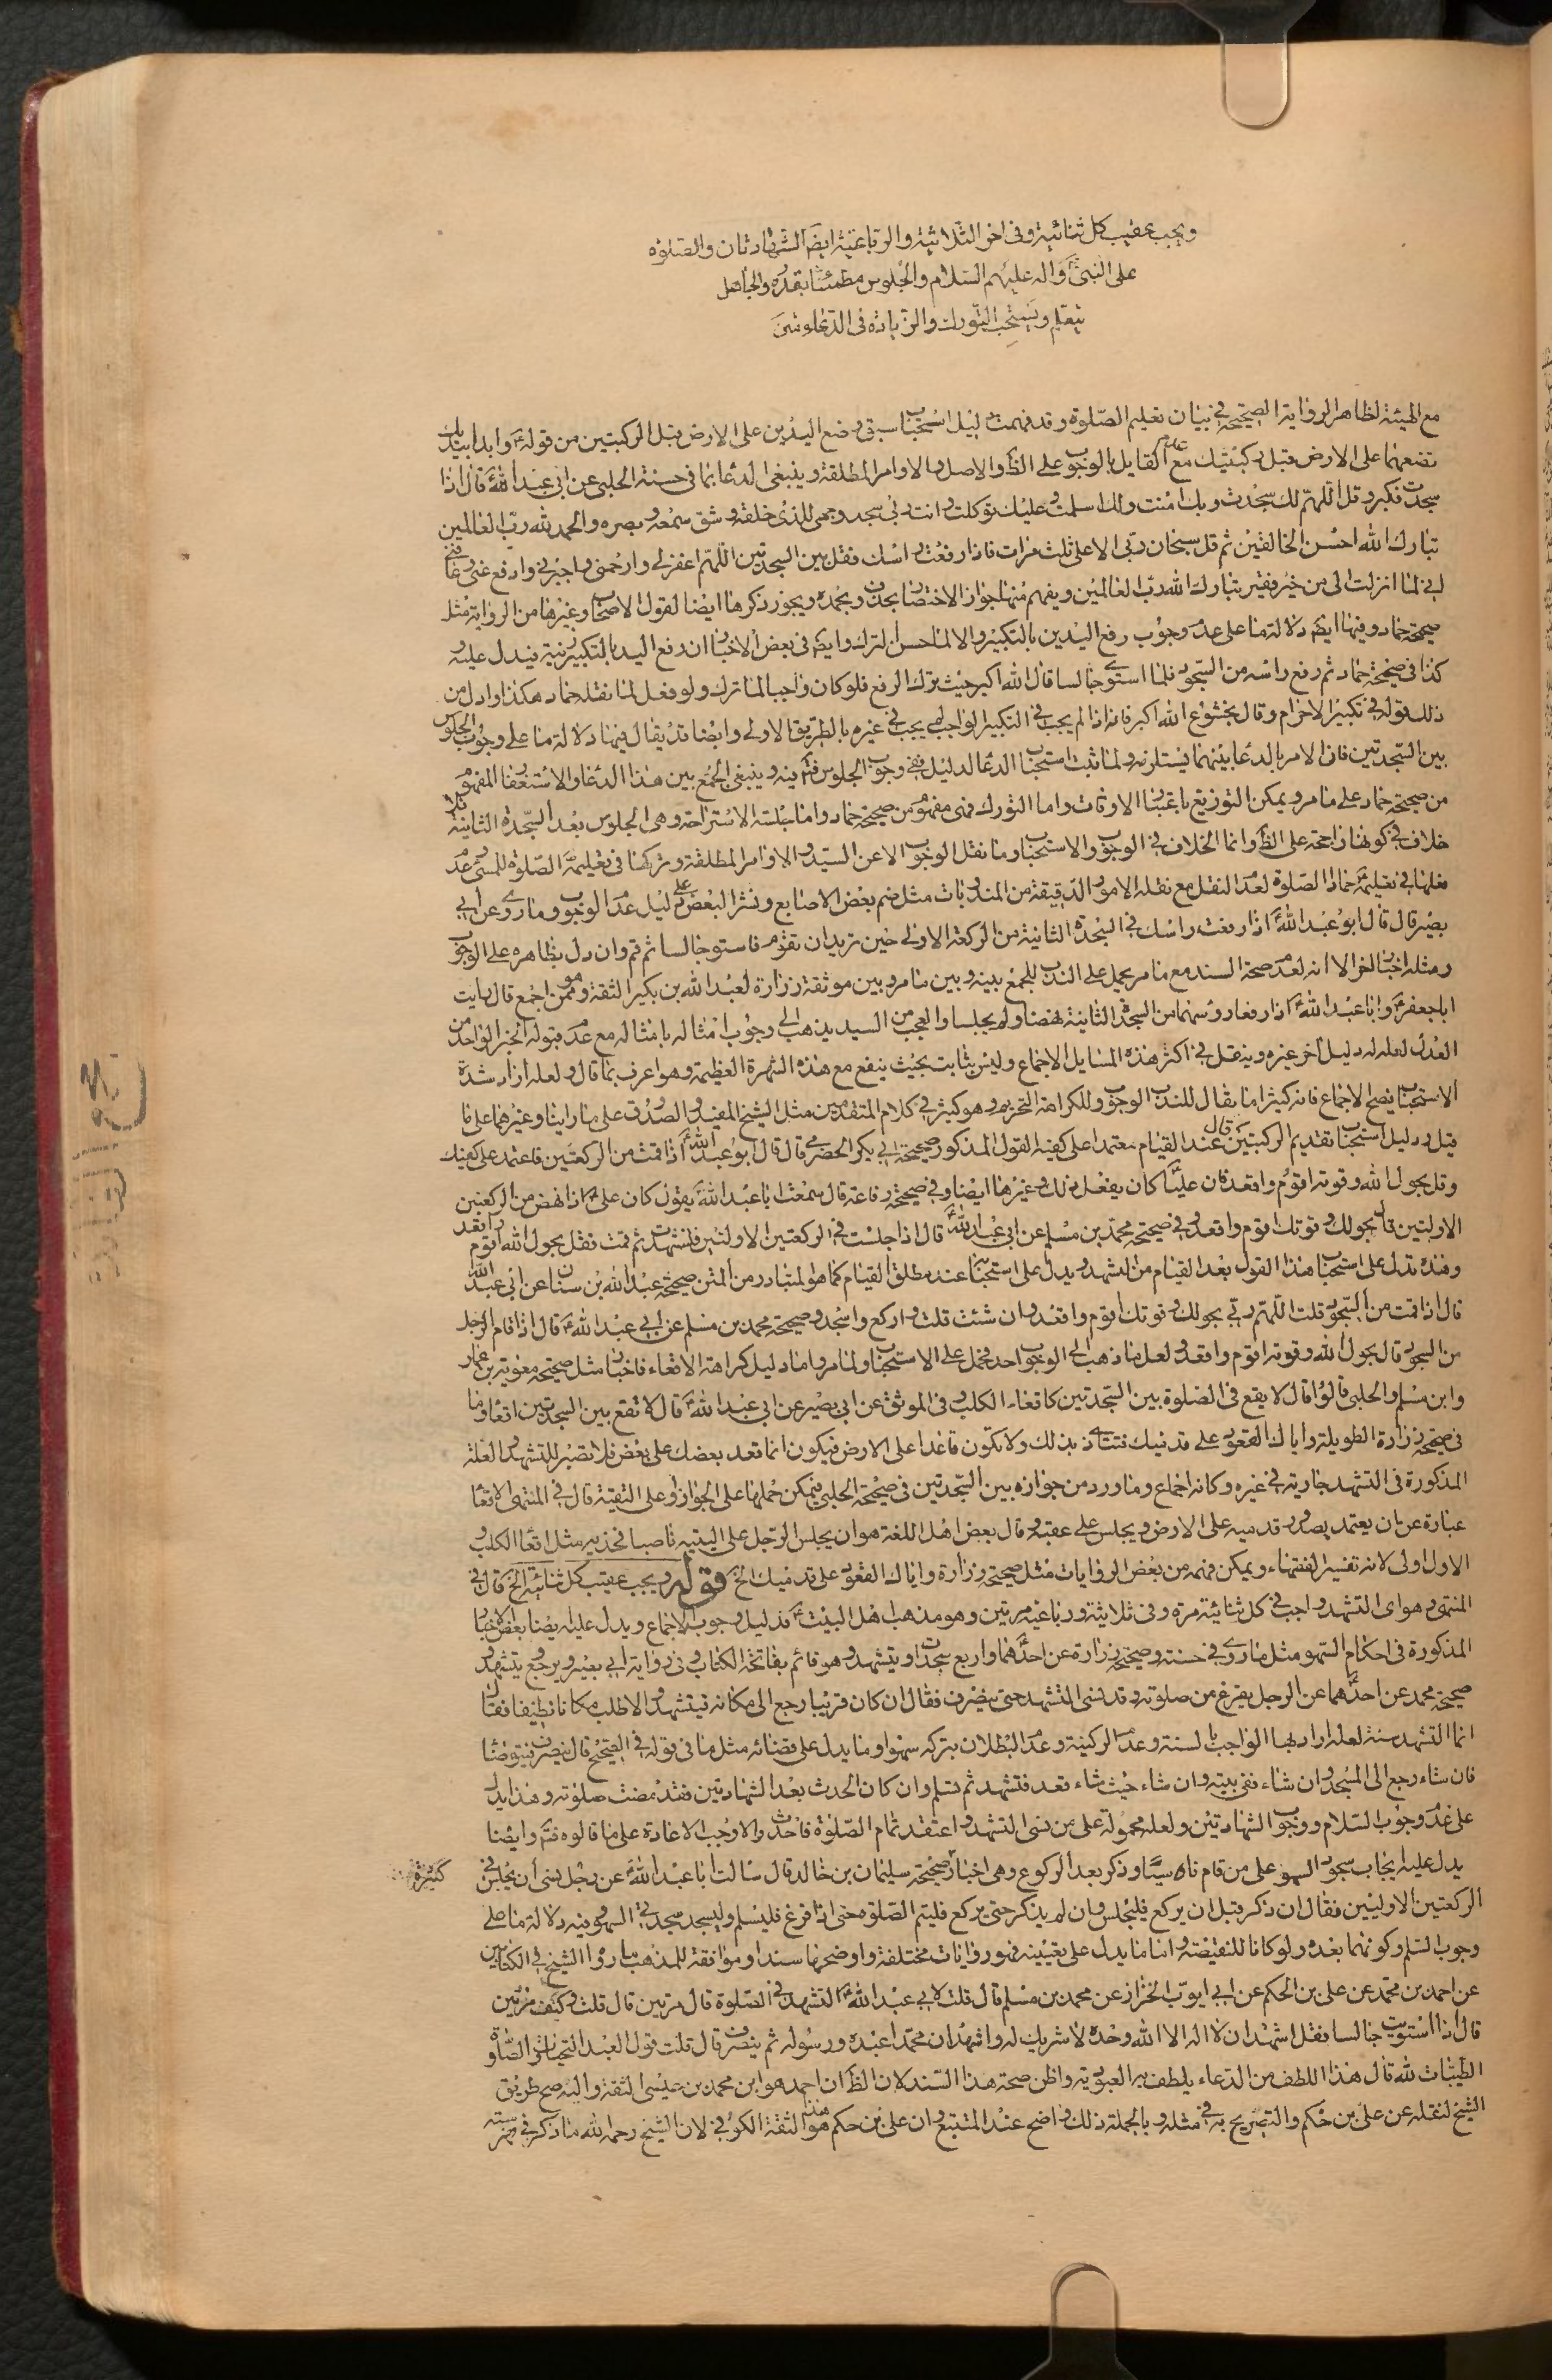 ويجب عقيب كل ثنائية وفى اخر الثلاثية والرباعية ايضا الشهادتان والصلوة
على النبى وآله عليهم السلام والجلوس مطمئنا بقدره والجاهل
يتعلم ويستحب التورك والزيادة فى الدعاء شى
مع الهيئة لظاهر الرواية الصحيحة فى بيان تعليم الصلوة وقد فهمت دليل استحباب سبق وضع اليدين على الارض قبل الركبتين من قوله ع وابدا بيديك
تضعهما على الارض قبل ركبتيك مع عدم القايل بالوجوب على الظ والاصل والاوامر المطلقة وينبغى الدعا بما فى حسنة الحلبى عن ابى عبد الله ع قال اذا
سجدت فكبر وقل اللهم لك سجدت وبك امنت ولك اسلمت وعليك توكلت وانت ربى سجد وجهى للذى خلقه وشق سمعه وبصره والحمد لله رب العالمين
تبارك الله احسن الخالقين ثم قل سبحان ربى الاعلى ثلث مرات فاذا رفعت راسك فقل بين السجدتين اللهم اغفر لى وارحمنى واجبرنى وادفع عنى وعافنى
انى لما انزلت الى من خير فقير تبارك الله رب العالمين ويفهم منها جواز الاختصار بحذف وبحمده ويجوز ذكرها ايضا لقول الاصحاب وغيرها من الرواية مثل
صحيحة حماد وفيها ايض دلالة ما على عدم وجوب رفع اليدين بالتكبير والا لما حسن الترك وايض فى بعض الاخبار ان رفع اليد بالتكبير زينة فيدل عليه
كذا فى صحيحة حماد ثم رفع راسه من السجود فلما استوى جالسا قال الله اكبر حيث ترك الرفع فلو كان واجبا لما ترك ولو فعل لما نقله حماد هكذا وادل من
ذلك قوله فى تكبير الاحرام وقال بخشوع الله اكبر فانه اذا لم يجب فى التكبير الواجب لم يجب فى غيره بالطريق الاولى وايضا قد يقال فيها دلالة ما على وجوب الجلوس
بين السجدتين فان الامر بالدعا بينهما يستلزمه ولما ثبت استحباب الدعا لدليل فبقى وجوب الجلوس فتم فيه وينبغى الجمع بين هذا الدعا والاستغفار المفهوم
من صحيحة حماد على ما مر ويمكن التوزيع باعتبار الاوقات واما التورك فهى مفهوم من صحيحة حماد واما جلسة الاستراحة وهى الجلوس بعد السجدة الثانية فلا
خلاف فى كونها راجحة على الظ وانما الخلاف فى الوجوب والاستحباب وما نقل الوجوب الا عن السيد والاوامر المطلقة وتركها فى تعليمه الصلوة للمسى وعدم
فعلها فى تعليمه حمادا الصلوة لعدم النقل مع نقله الامور الدقيقة من المندوبات مثل ضم بعض الاصابع ونشر البعض دليل عدم الوجوب وما روى عن ابى
بصير قال قال ابو عبد الله ع اذا رفعت راسك فى السجدة الثانية من الركعة الاولى حين تريد ان تقوم فاستو جالسا ثم قم وان دل بظاهره على الوجوب
ومثله اخبار اخر الا انه لعدم صحة السند مع ما مر يحمل على الندب للجمع بينه وبين ما مر وبين موثقة زرارة لعبد الله بن بكير الثقة وهو ممن اجمع قال رايت
ابا جعفر ع وابا عبد الله ع اذا رفعا رؤسهما من السجدة الثانية نهضا ولم يجلسا والعجب من السيد يذهب الى وجوب امثاله بامثاله مع عدم قبوله الخبر الواحد من
العدل لعله له دليل آخر غيره وينقل فى اكثر هذه المسايل الاجماع وليس بثابت بحيث ينفع مع هذه الشهرة العظيمة وهو اعرف بما قال ولعله اراد شدة
الاستحباب فيصح الاجماع فانه كثيرا ما يقال للندب الوجوب وللكراهة التحريم وهو كثير فى كلام المتقدمين مثل الشيخ المفيد والصدوق على ما راينا وغيرهما على ما
قيل ودليل استحباب تقديم الركبتين عند القيام معتمدا على كفيه القول المذكور صحيحة ابى بكر الحضرمى قال قال ابو عبد الله ع اذا قمت من الركعتين فاعتمد على كفيك
وقل بحول الله وقوته اقوم واقعد فان عليا كان يفعل ذلك وغيرها ايضا وفى صحيحة رفاعة قال سمعت ابا عبد الله ع يقول كان على ع اذا نهض من الركعتين
الاولتين قال بحولك وقوتك اقوم واقعد وفى صحيحة محمد بن مسلم عن ابى عبد الله ع قال اذا جلست فى الركعتين الاولتين فتشهدت ثم قمت فقل بحول الله اقوم واقعد
وهذه تدل على استحباب هذا القول بعد القيام من التشهد ويدل على استحبابه عند مطلق القيام كما هو المتبادر من المتن صحيحة عبد الله بن سنان عن ابى عبد الله
قال اذا قمت من السجود قلت اللهم ربى بحولك وقوتك اقوم واقعد وان شئت قلت واركع واسجد وصحيحة محمد بن مسلم عن ابى عبد الله ع قال اذا قام الرجل
من السجود قال بحول الله وقوته اقوم واقعد ولعل ما ذهب الى الوجوب احد فحمل على الاستحباب ولما مر واما دليل كراهة الاقعاء فاخبار مثل صحيحة معوية بن عمار
وابن مسلم والحلبى قالوا قال لا يقع فى الصلوة بين السجدتين كاقعاء الكلب وفى الموثق عن ابى بصير عن ابى عبد الله ع قال لا تقع بين السجدتين اقعاء وما
فى صحيحة زرارة الطويلة واياك والقعود على قدميك فتتاذى بذلك ولا تكون قاعدا على الارض فيكون انما قعد بعضك على بعض فلا تصبر للتشهد والعلة
المذكورة فى التشهد جارية فى غيره وكانه اجماع وما ورد من جوازه بين السجدتين فى صحيحة الحلبى فيمكن حملها على الجواز او على التقية قال فى المنتهى الاقعا
عبارة عن ان يعتمد بصدور قدميه على الارض ويجلس على عقبه وقال بعض اهل اللغة هو ان يجلس الرجل على اليتيه ناصبا فخذيه مثل اقعا الكلب و
الاول اولى لانه تفسير الفقهاء ويمكن فهمه من بعض الروايات مثل صحيحة زرارة واياك القعود على قدميك الخ قوله ويجب عقيب كل ثنائية الخ قال فى
المنتهى وهو اى التشهد واجب فى كل ثنائية مرة وفى ثلاثية ورباعية مرتين وهو مذهب اهل البيت ع فدليل وجوب الاجماع ويدل عليه ايضا بعض الاخبار
المذكورة فى احكام السهو مثل ما روى فى حسنة وصحيحة زرارة عن احدهما واربع سجدات ويتشهد وهو قائم بفاتحة الكتاب وفى رواية ابى بصير ويرجع يتشهد و
صحيحة محمد عن احدهما عن الرجل يفرغ من صلوته وقد نسى التشهد حتى ينصرف فقال ان كان قريبا رجع الى مكانه فيتشهد والا طلب مكانا نظيفا فقال
انما التشهد سنة لعله اراد بها الواجب بالسنة وعدم الركنية وعدم البطلان بتركه سهوا وما يدل على قضائه مثل ما فى قوله فى الصحيح قال ينصرف فيتوضأ
فان شاء رجع الى المسجد وان شاء ففى بيته وان شاء حيث شاء قعد فتشهد ثم تسلم وان كان الحدث بعد الشهادتين فقد مضت صلوته وهذا يدل
على عدم وجوب السلام ووجوب الشهادتين ولعله محمولة على من نسى التشهد واعتقد تمام الصلوة فاحدث والا وجب الاعادة على ما قالوه فتم وايضا
يدل عليه ايجاب سجود السهو على من قام ناسيا وذكر بعد الركوع وهى اخبار كثيرة صحيحة سليمان بن خالد قال سالت ابا عبد الله ع عن رجل نسى ان يجلس فى
الركعتين الاوليين فقال ان ذكر قبل ان يركع فليجلس وان لم يذكر حتى يركع فليتم الصلوة حتى اذا فرغ فليسلم وليسجد سجدتى السهو وفيه دلالة ما على
وجوب التسلم وكونهما بعده ولو كانا للنقيضة واما ما يدل على تعيينه فهو روايات مختلفة واوضحها سندا وموافقة للمذهب ما رواه الشيخ فى الكتابين
عن احمد بن محمد عن على بن الحكم عن ابى ايوب الخزاز عن محمد بن مسلم قال قلت لابى عبد الله ع التشهد فى الصلوة قال مرتين قال قلت وكيف مرتين
قال اذا استويت جالسا فقل اشهد ان لا اله الا الله وحده لا شريك له واشهد ان محمدا عبده ورسوله ثم ينصرف قال قلت قول العبد التحيات لله والصلوة
الطيبات لله قال هذا اللطف من الدعاء يلطف به العبد ربه واظن صحة هذا السند لان الظ ان احمد هو ابن محمد بن عيسى الثقة واليه صح طريق
الشيخ لنقله عن على بن حكم والتصريح به فى مثله وبالجملة ذلك واضح عند المتتبع وان على بن حكم هو الثقة الكوفى لان الشيخ رحمه الله ما ذكر فى فهرسته